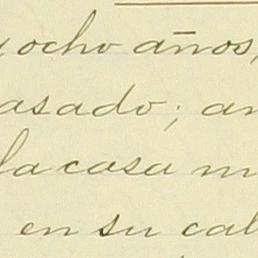 y ocho años,
asado; an
la casa m
en su cal